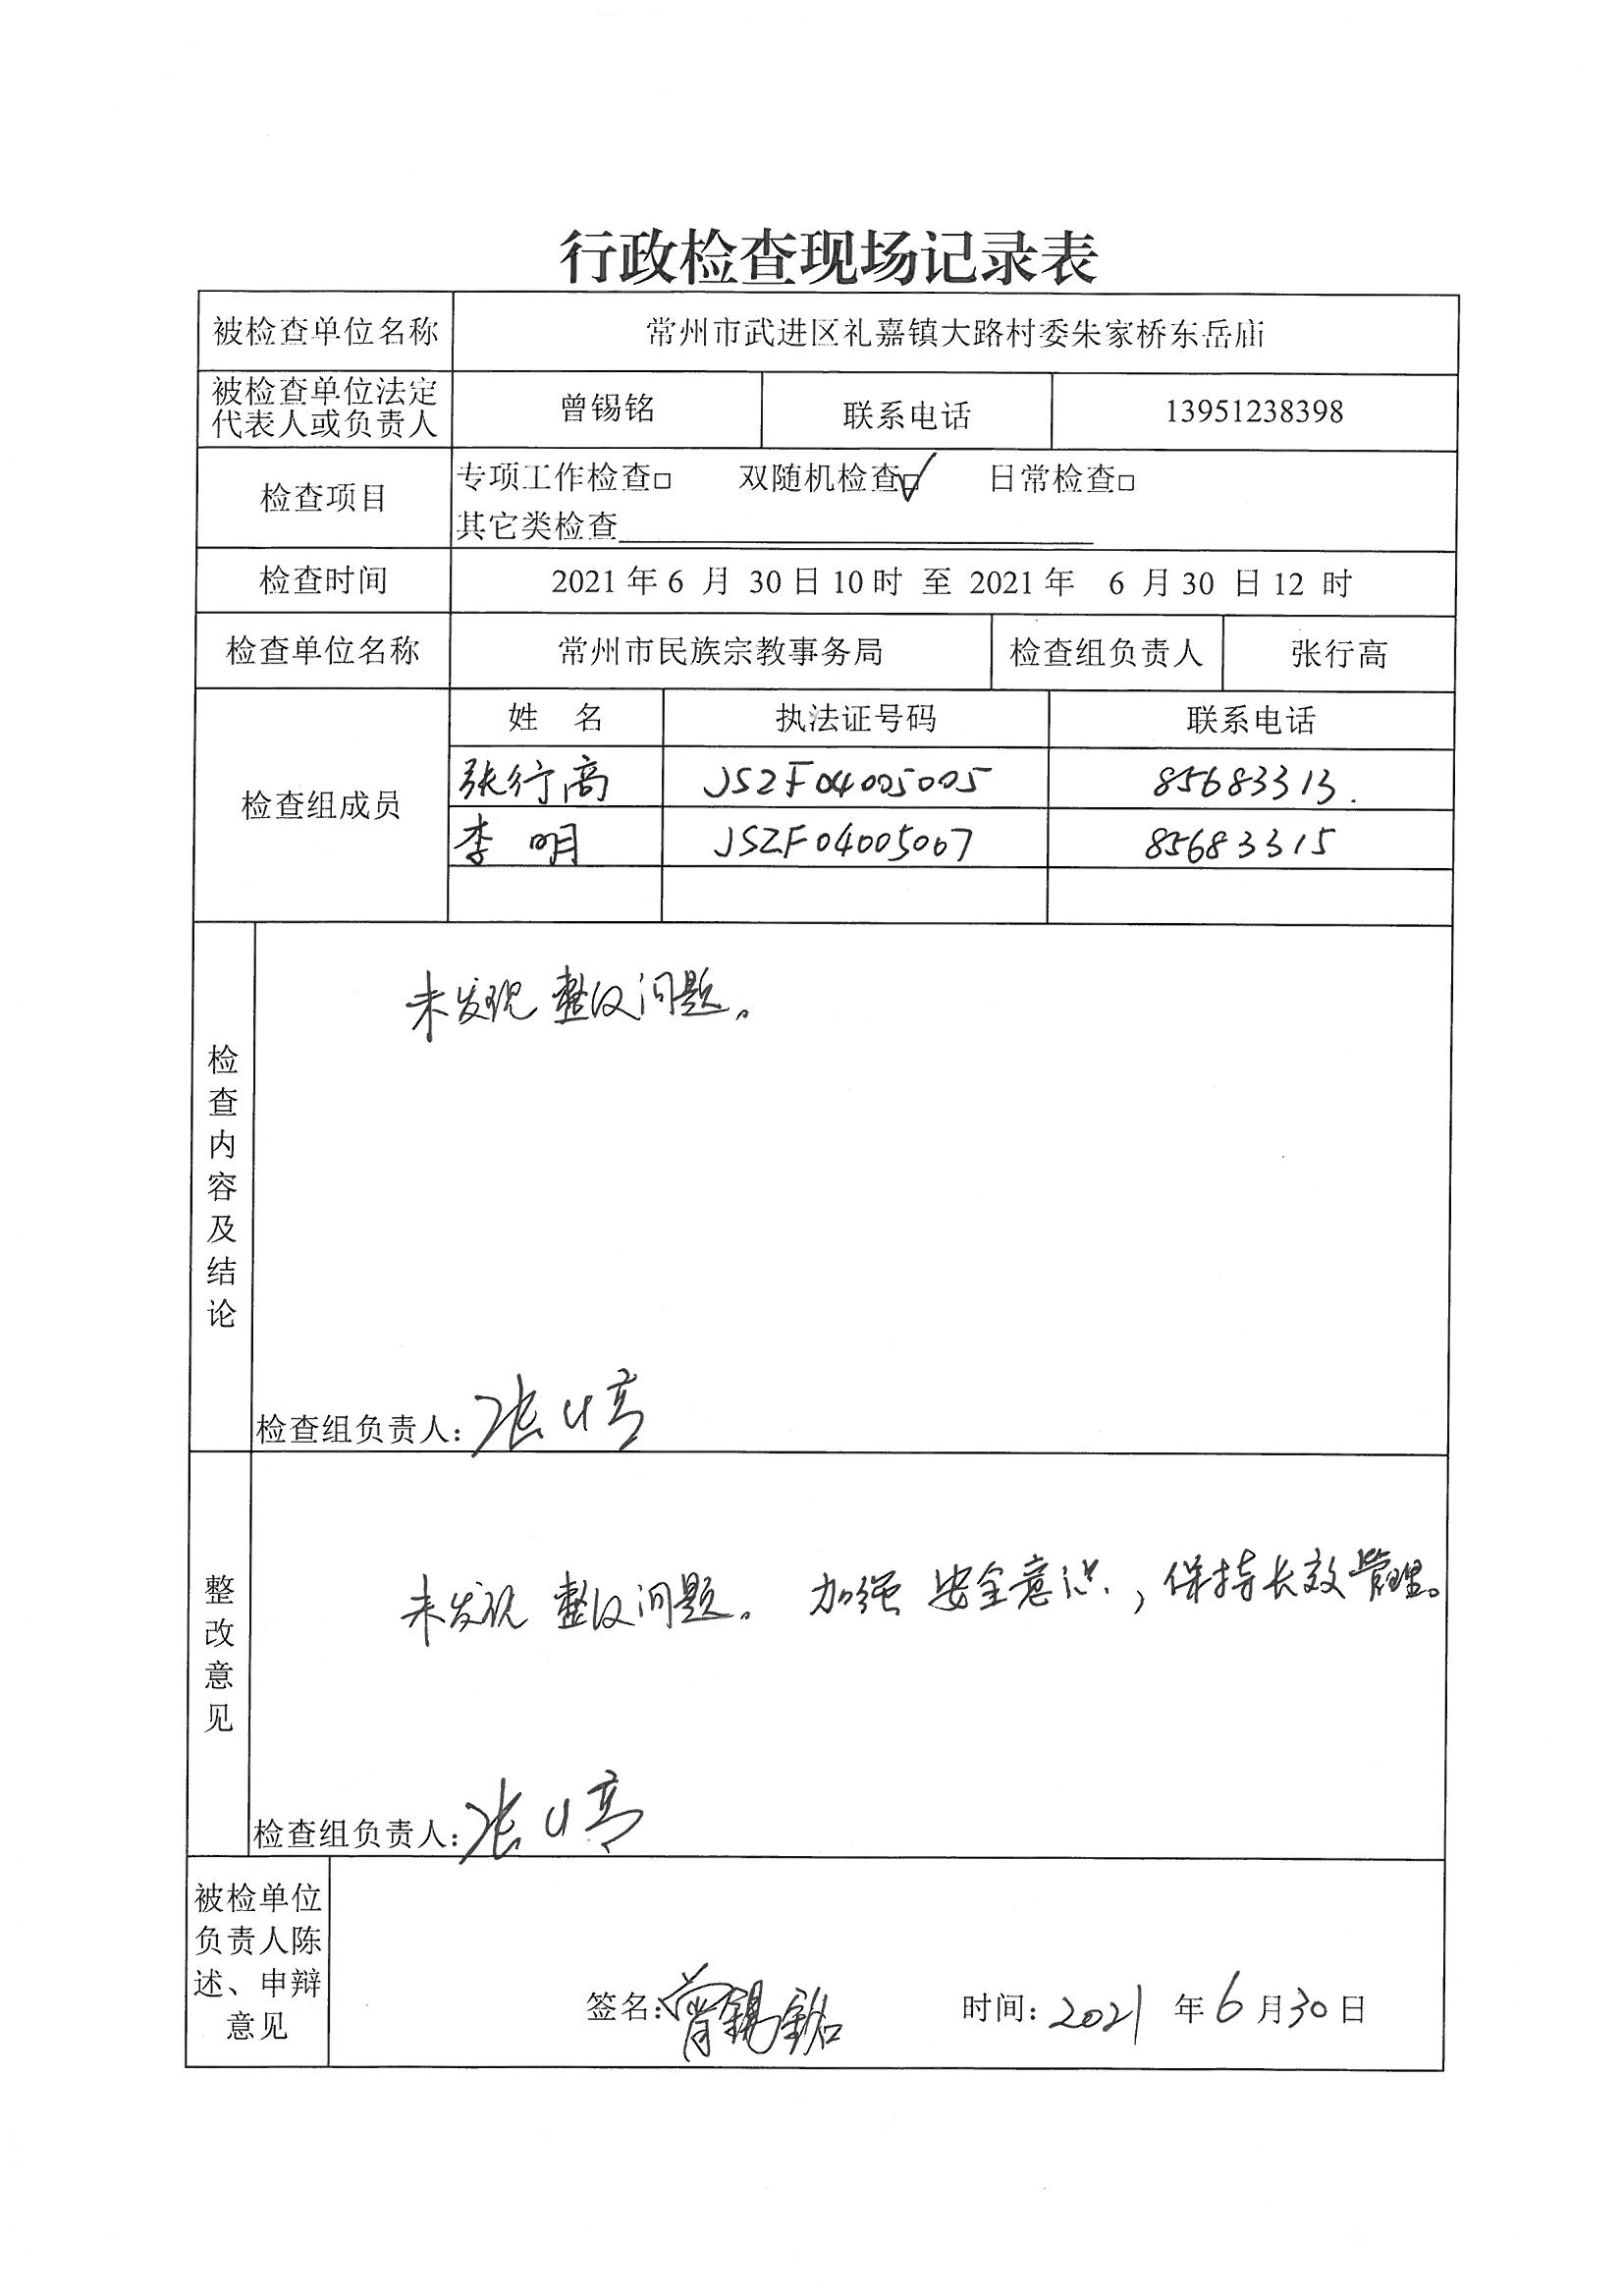 行政检查现场记录表
被检查单位名称 常州市武进区礼嘉镇大路村委朱家桥东岳庙
被检查单位法定
代表人或负责人 曾锡铭 联系电话 13951238398
检查项目 专项工作检查□ 双随机检查☑ 日常检查□
其它类检查
检查时间 2021年6 月 30日10时 至 2021年 6 月30 日12 时
检查单位名称 常州市民族宗教事务局 检查组负责人 张行高
检查组成员 姓 名 执法证号码 联系电话
张行高 JSZF04005005 85683313.
李 明 JSZF04005007 85683315
检查内容及结论
未发现整改问题。
检查组负责人: 张行高
整改意见
未发现整改问题。 加强安全意识，保持长效管理。
检查组负责人: 张行高
被检单位
负责人陈
述、申辩
意见
签名: 曾锡铭 时间: 2021 年 6 月 30 日